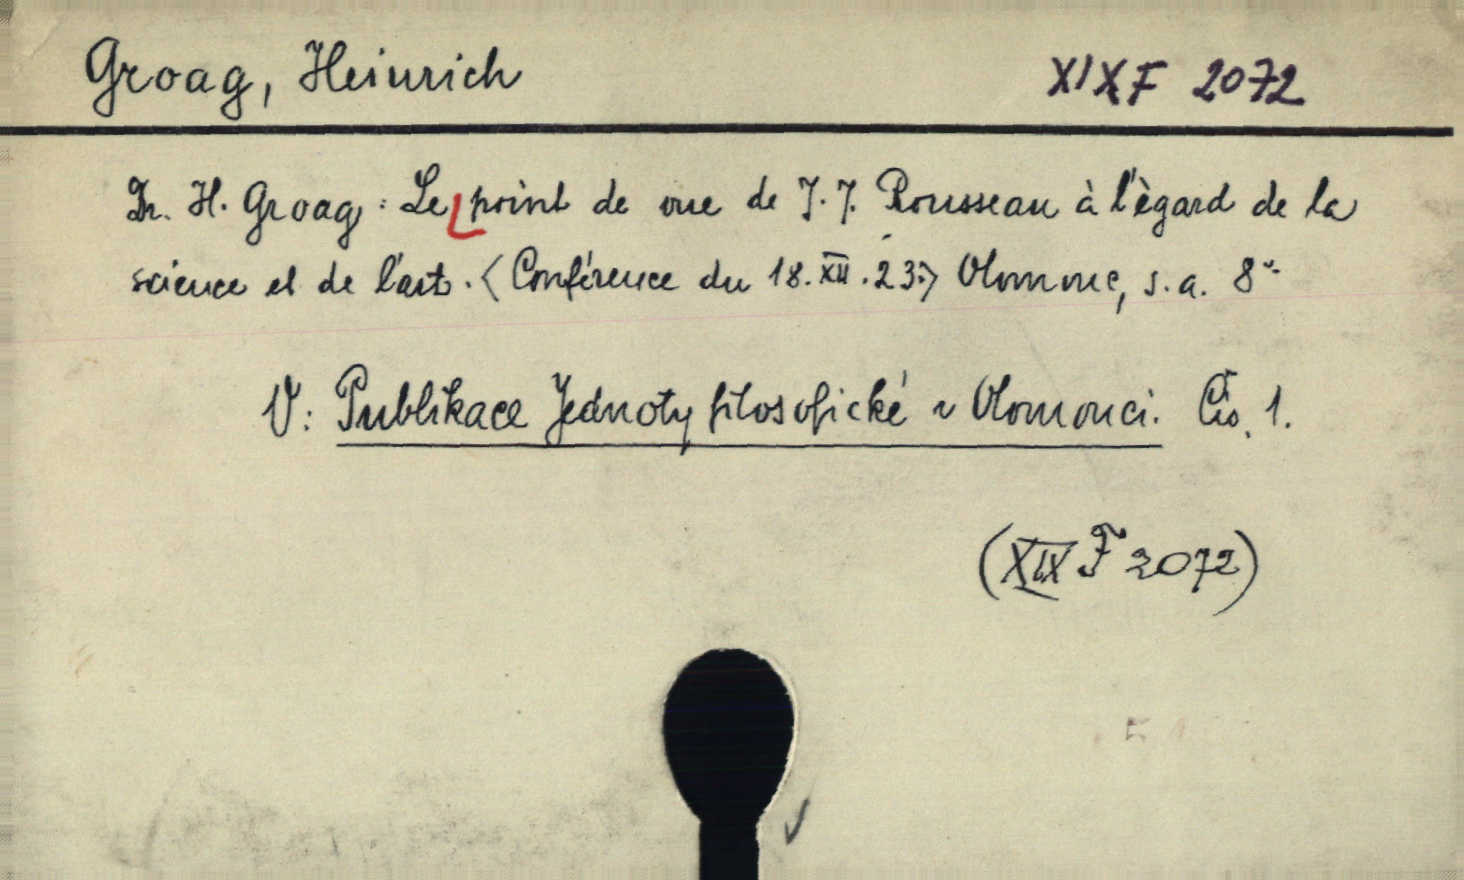 Groag, Heinrich
XIX F 2072
Dr. H. Groag: Le point de vue de J. J. Rousseau à l'ègard de la
science et de l'art. <Conférence du 18. XII. 23.> Olomouc, s. a. 8°.
V: Publikace Jednoty filosofické v Olomouci. Čís. 1.
(XIX F 2072)